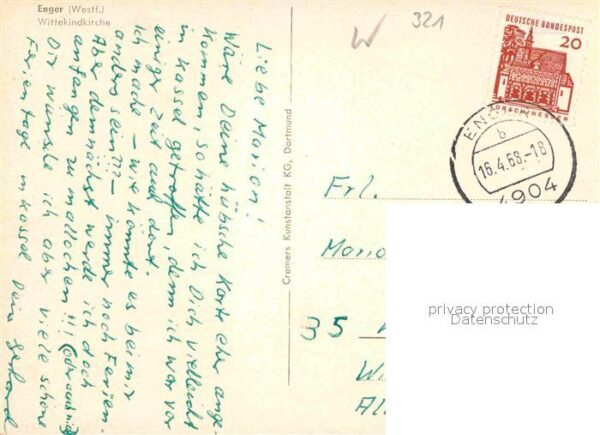 Enger (Westf.)
Wittekindkirche
Liebe Marion!
Wäre Deine hübsche Karte eher ange-
kommen, so hätte ich Dich vielleicht
in Kassel getroffen, denn ich war vor
einiger Zeit auch dort.
Ich mache – wie könnte es bei mir
anders sein??? – immer noch Ferien.
Aber demnächst werde ich doch
anfangen zu malochen!!! (oder auch nicht)
Dir wünsche ich aber viele schöne
Ferientage in Kassel Dein Gerhard
Cramers Kunstanstalt KG, Dortmund
W
321
DEUTSCHE BUNDESPOST
20
LORSCH/HESSEN
ENGER
b
16.4.68.-18
4904
Frl.
Mario
35
W
Al
privacy protection
Datenschutz